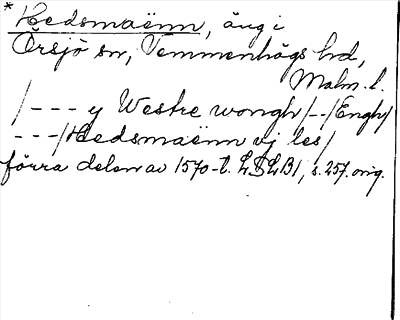 * Hedsmaënn, äng i
Örsjö sn, Vemmenhögs hd,
Malm. l.
/--- y Westre wongh/--/Engh/
---/Hedsmaënn vj les/
förra delen av 1570-t. LSLB1, s. 257. orig.